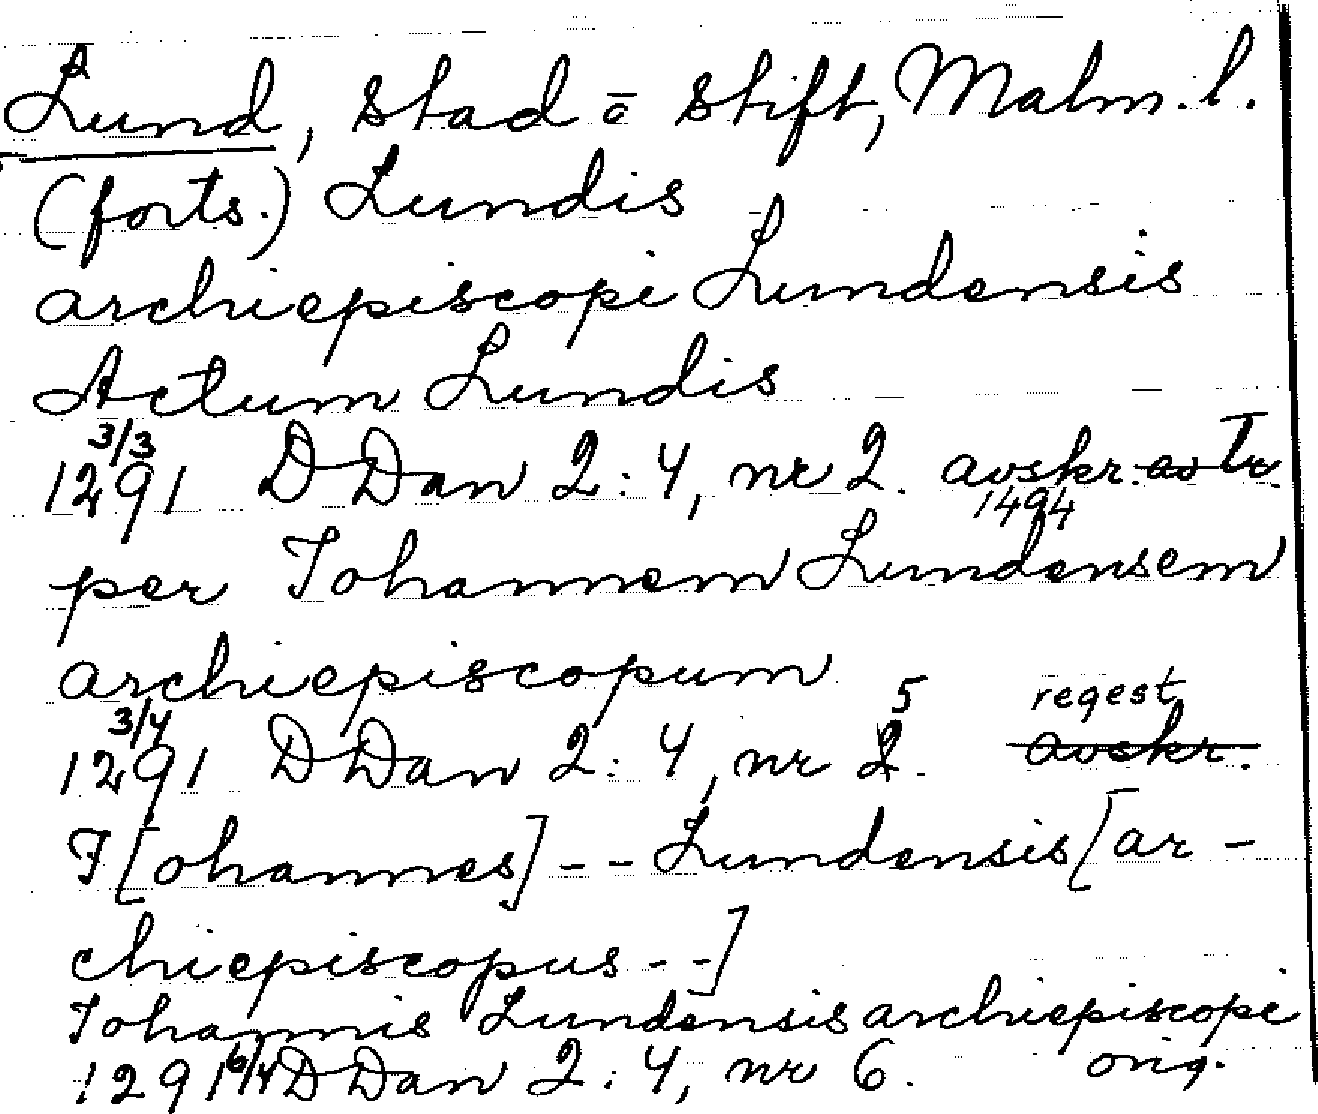 Lund, stad o stift, Malm. l.
(forts.) Lundis
archiepiscopi Lundensis
Actum Lundis
1291 3/3 DDan 2:4, nr 2. avskr. av Tr. 1494
per Iohannem Lundensem
archiepiscopum
1291 3/4 DDan 2:4, nr 2. 5 avskr. regest
I[ohannes] -- Lundensis [ar-
chiepiscopus --]
Iohannis Lundensis archiepiscopi
1291 6/4 DDan 2:4, nr 6. orig.